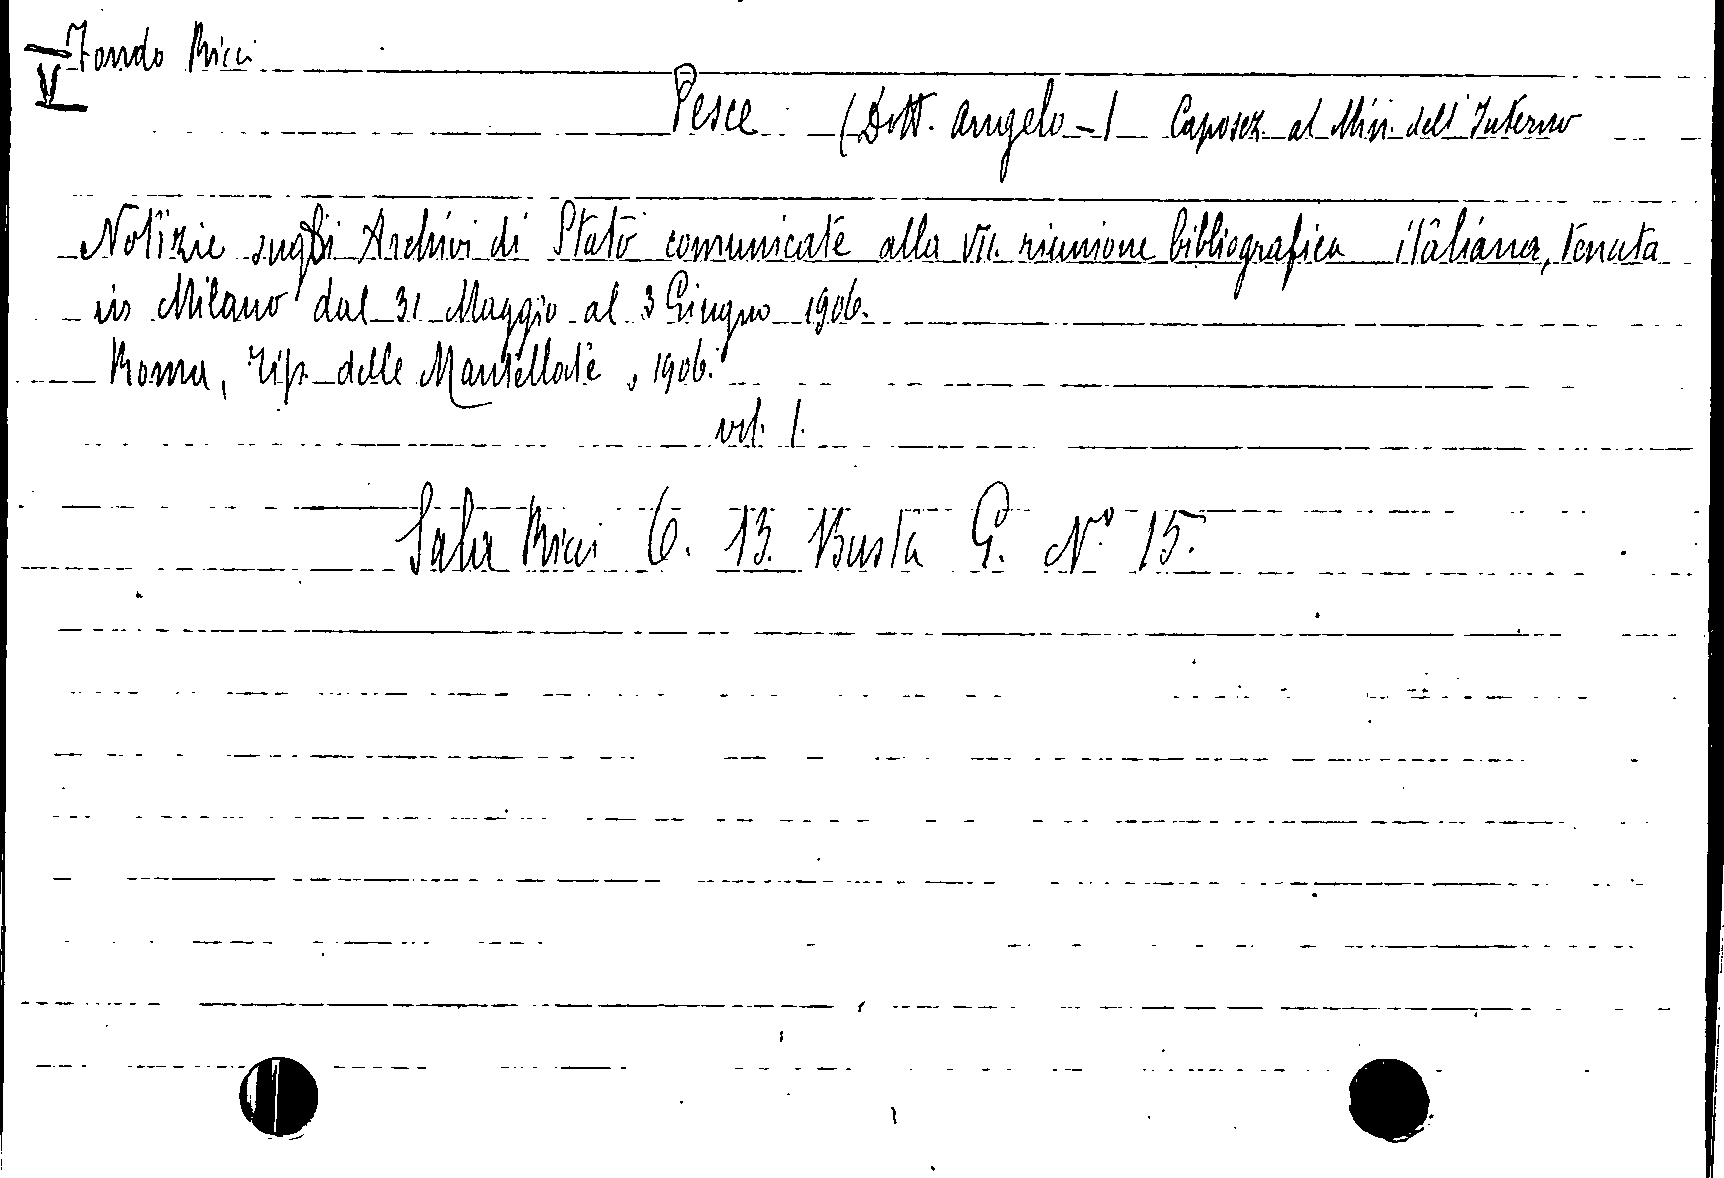 Fondo Ricci
V
Pesce (Dott. Angelo -) Caposez. al Min. dell'Interno
Notizie sugli Archivi di Stato comunicate alla VII. riunione bibliografica italiana, tenuta
in Milano dal 31 Maggio al 3 Giugno 1906.
Roma, Tip. delle Mantellate, 1906.
vol. 1.
Sala Ricci 6. 13. Busta G. N.° 15.